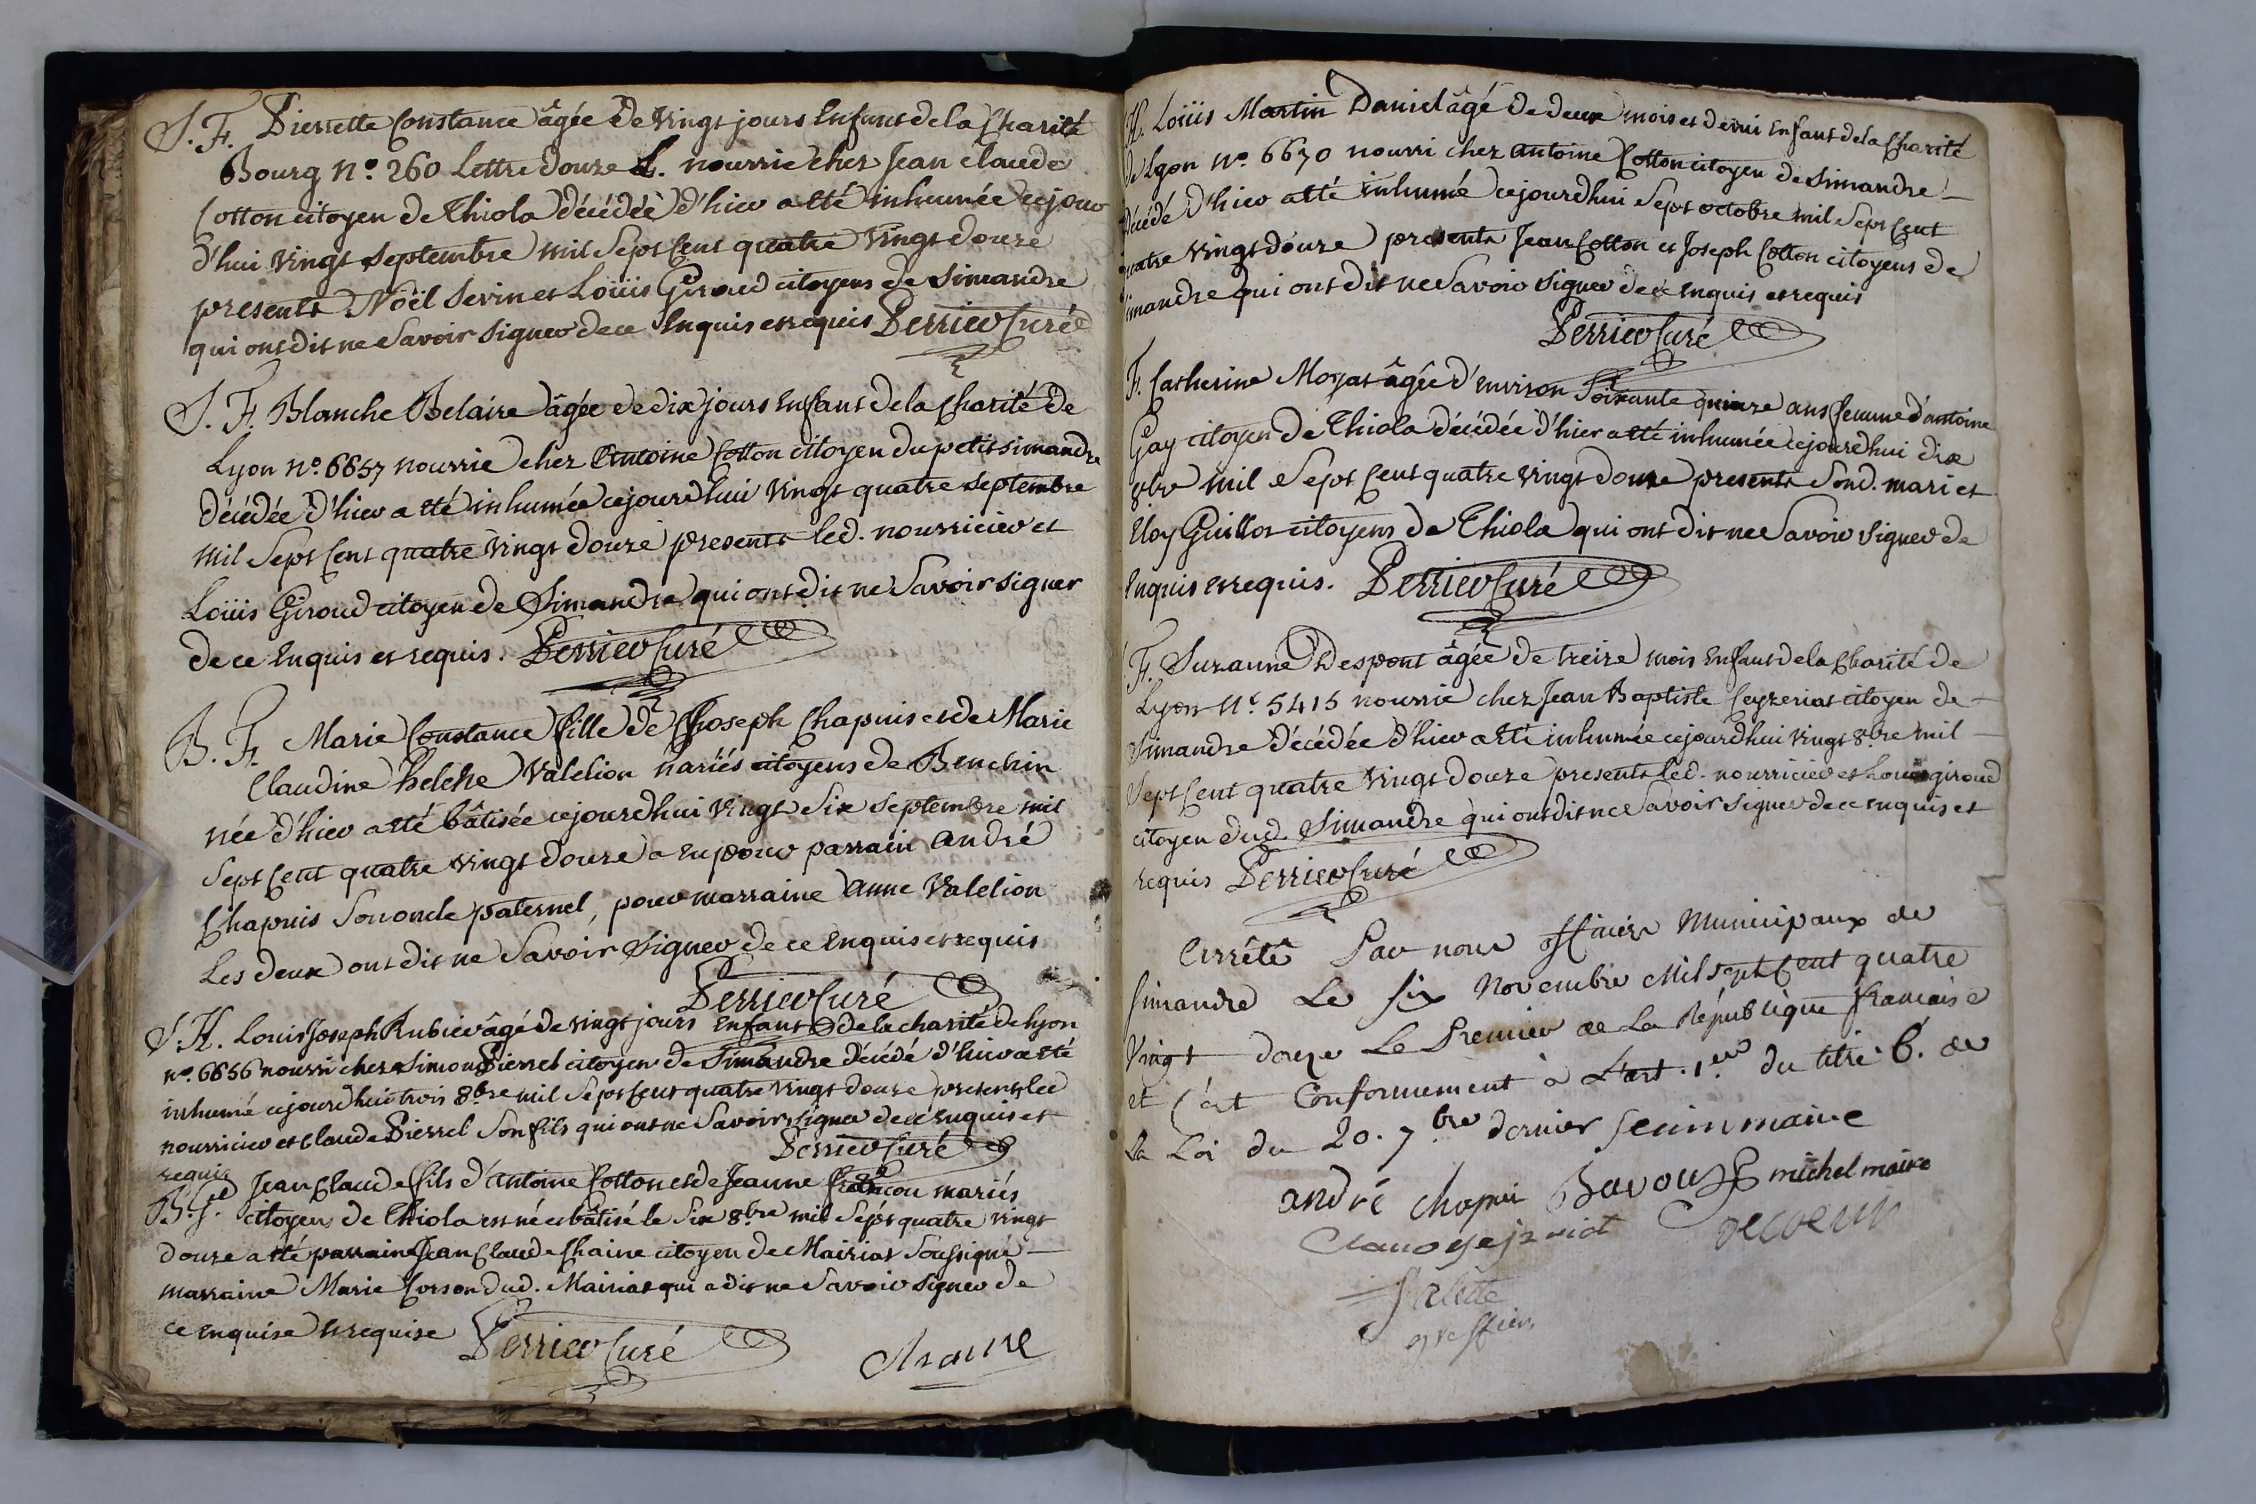 S. F. Pierrette Constance âgée de vingt jours Enfant de la Charité
Bourg n°. 260 Lettre douze L. nourrie chez Jean claude
Cotton citoyen de Thiola décédée d'hier a été inhumée cejour
d'hui vingt septembre mil Sept Cent quatre vingt douze
presents Noël Sevin et Loüis Giroud citoyens de Simandre
qui ont dit ne Savoir signer de ce Enquis et requis Perrier Curé
S. F. Blanche Belaire âgée de dix jours Enfant de la Charité de
Lyon n°. 6657 nourrie chez Antoine Cotton citoyen du petit simandre
décédée d'hier a été inhumée cejourdhui vingt quatre septembre
mil Sept Cent quatre vingt douze presents led. nourricier et
Loüis Giroud citoyen de Simandre qui ont dit ne Savoir signer
de ce Enquis et requis. Perrier Curé
B. F. Marie Constance fille de Joseph Chapuis et de Marie
Claudine Valelion mariés citoyens de Benchin
née d'hier a été bâtisée cejourdhui vingt Six septembre mil
Sept Cent quatre vingt douze a eu pour parrain André
Chapuis Son oncle paternel, pour marraine Anne Valelion
Les deux ont dit ne Savoir signer de ce Enquis et requis
Perrier Curé
S. H. Louis Joseph Rubier âgé de vingt jours Enfant de la charité de Lyon
n°. 6656 nourri chez Simon Pierrel citoyen de Simandre décédé d'hier a été
inhumé cejourdhui trois 8bre mil Sept Cent quatre vingt douze presents led
nourricier et Claude Pierrel Son fils qui ont ne Savoir signer de ce enquis et
requis Perrier Curé
B. G. Jean Claude fils d'antoine Cotton et de Jeanne mariés
citoyens de Thiola est né et bâtisé le Six 8bre mil Sept quatre vingt
douze a été parrain Jean Claude Chaine citoyen de Mairiat Soussigné
marraine Marie Corson dud. Mairiat qui a dit ne Savoir signer de
ce enquise et requise Perrier Curé Chaine
H. Loüis Martin Daniel âgé de deux mois et demi Enfant de la Charité
de Lyon n°. 6670 nourri chez Antoine Cotton citoyen de Simandre
décédé d'hier a été inhumé cejourdhui Sept octobre mil Sept Cent
quatre vingt douze presents Jean Cotton et Joseph Cotton citoyens de
simandre qui ont dit ne Savoir signer de ce enquis et requis
Perrier Curé
F. Catherine Moyat âgée d'environ Soixante quinze ans femme d'antoine
Gay citoyen de Thiola décédée d'hier a été inhumée cejourdhui dix
8bre mil Sept Cent quatre vingt douze presents Sond. mari et
Eloy Guillot citoyens de Thiola qui ont dit ne Savoir signer de
Enquis et requis. Perrier Curé
F. Suzanne Despont âgée de treize mois Enfant de la Charité de
Lyon n°. 5415 nourrie chez Jean Baptiste Ceyzeriat citoyen de
Simandre décédée d'hier a été inhumée cejourdhui vingt 8bre mil
Sept Cent quatre vingt douze presents led. nourricier et Louis giroud
citoyen dud. Simandre qui ont dit ne Savoir signer de ce enquis et
requis Perrier Curé
Arrêté Par nous officiers Municipaux de
simandre Le six Novembre Mil sept Cent quatre
Vingt douze Le Premier de La République francaise
et C'at Conformement à L'art. 1er du titre 6. de
La Loi du 20. 7bre dernier maire
andré chapui michel maire
greffier